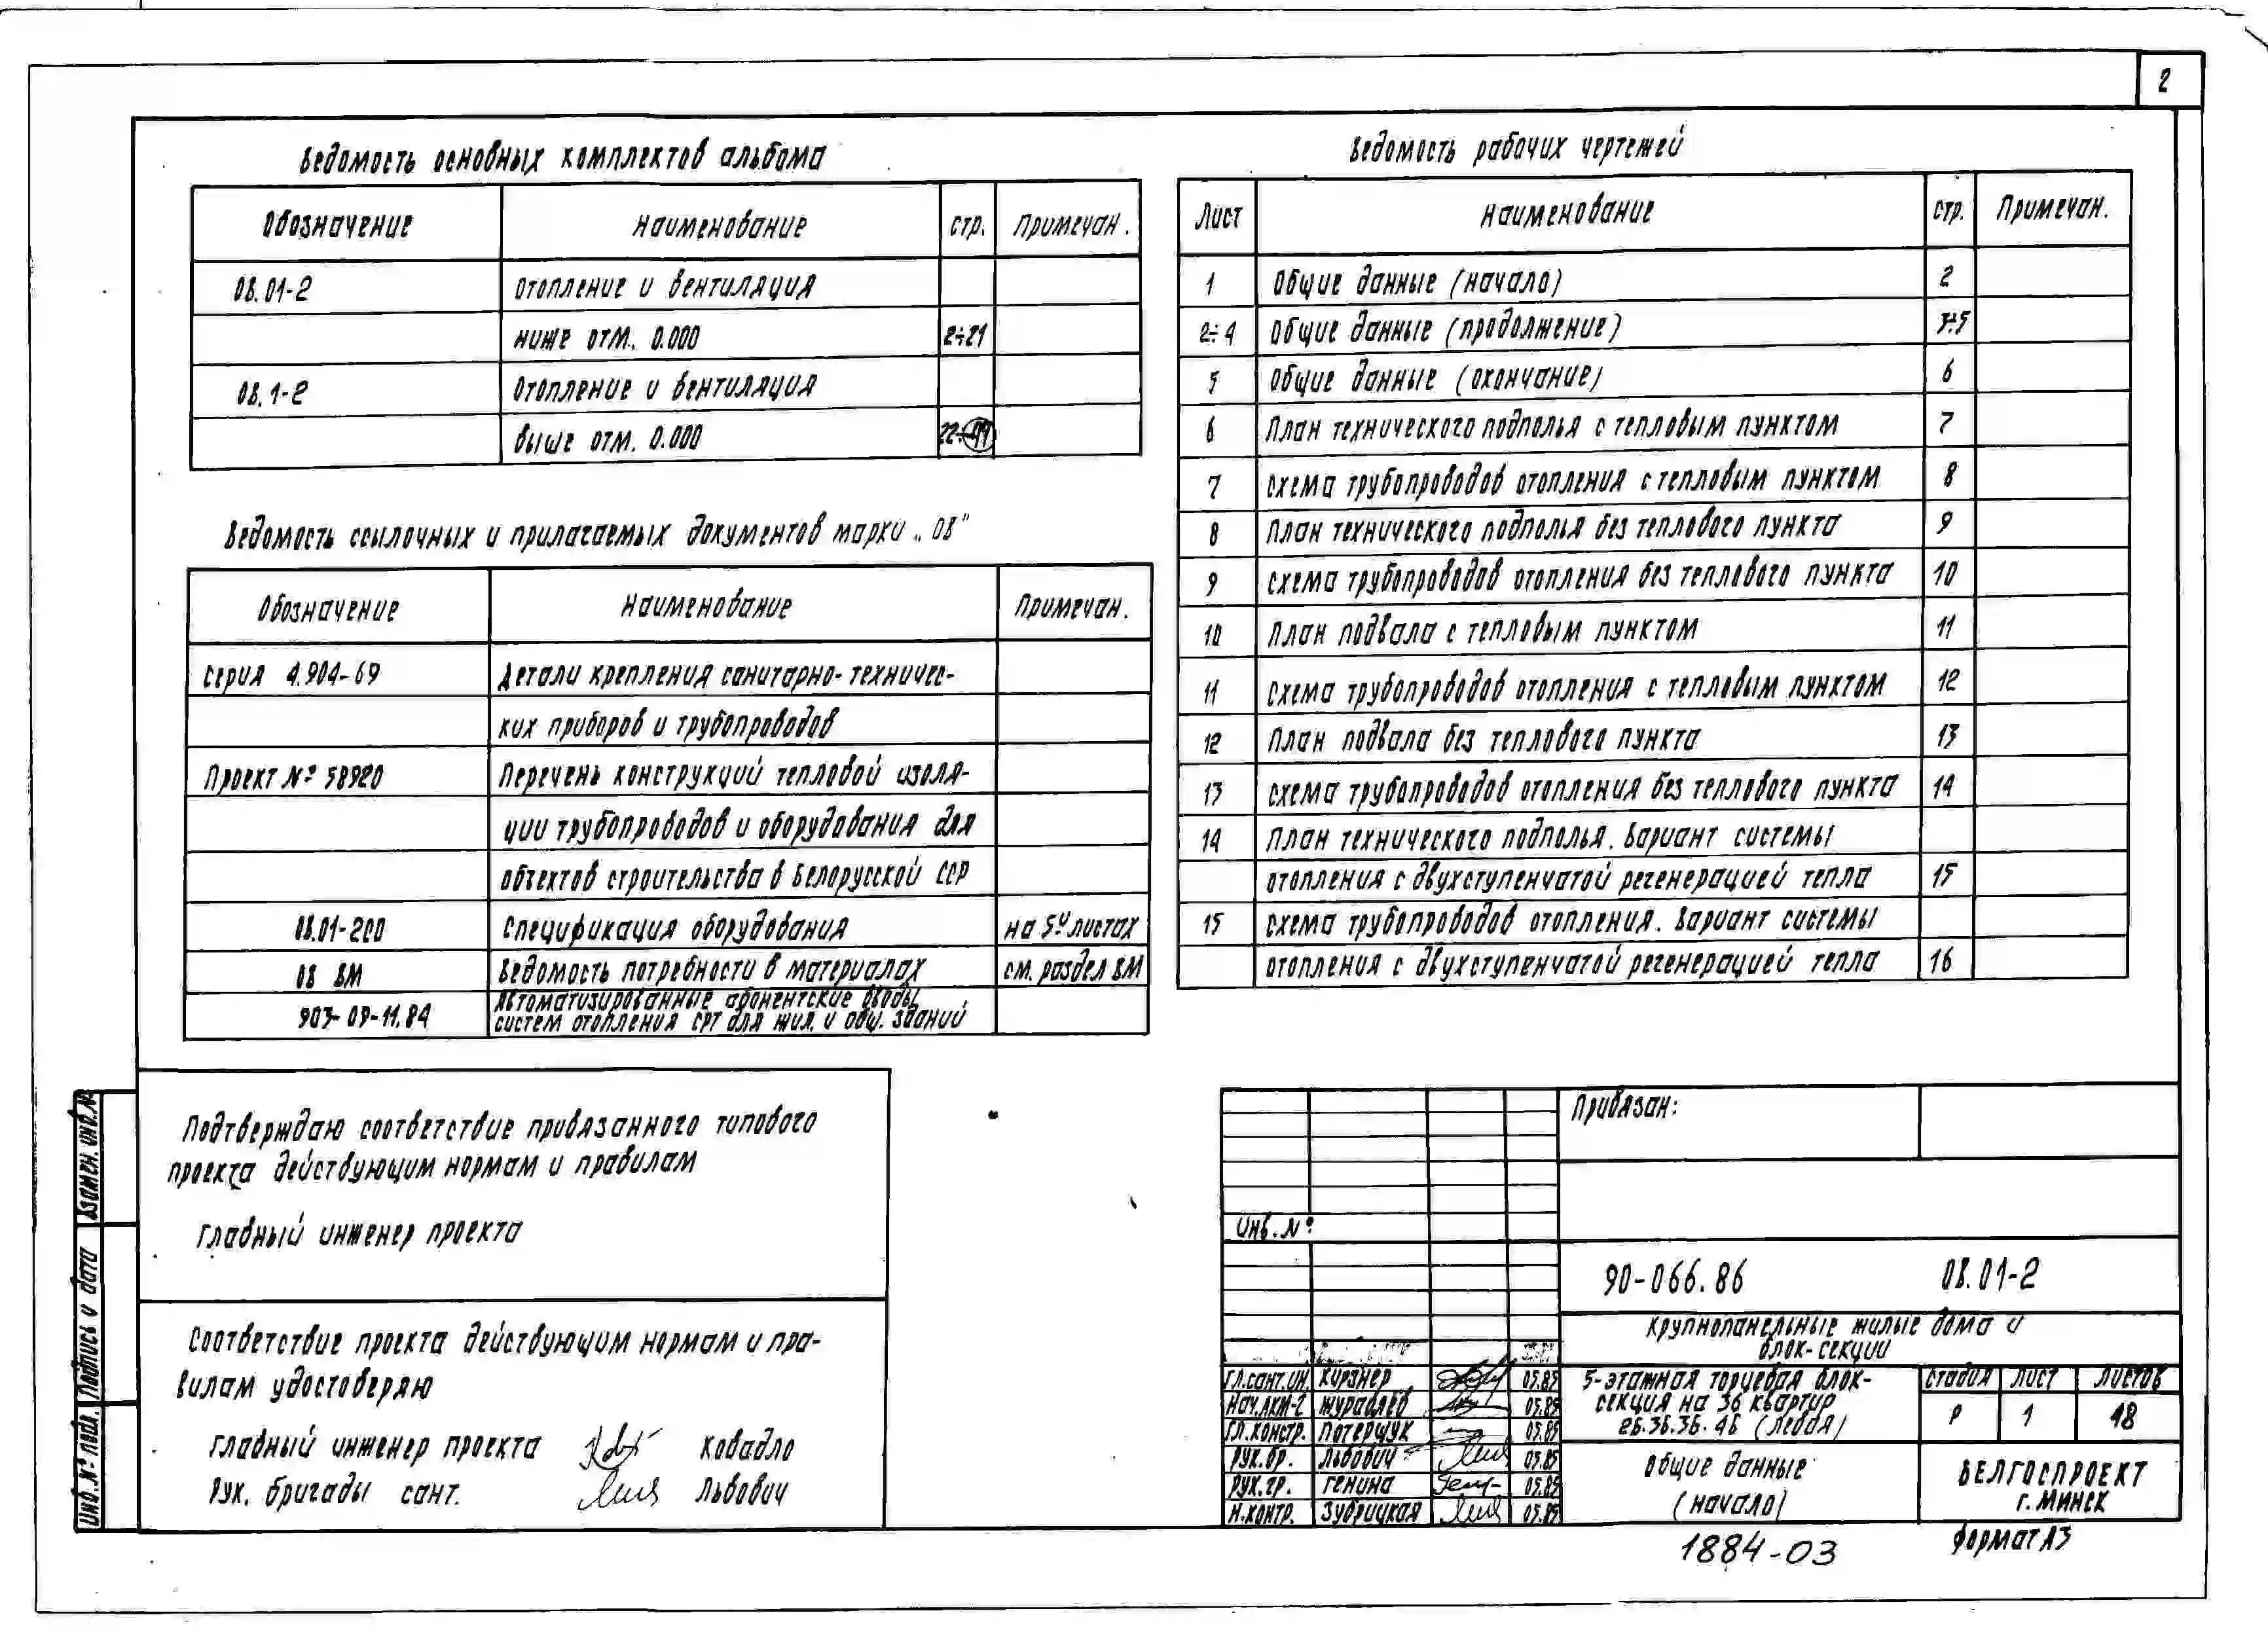 2
Ведомость основных комплектов альбома
Обозначение Наименование стр. Примечан.
ОВ.01-2 Отопление и вентиляция
ниже отм. 0.000 2÷21
ОВ.1-2 Отопление и вентиляция
выше отм. 0.000
Ведомость ссылочных и прилагаемых документов марки „ОВ"
Обозначение Наименование Примечан.
Серия 4.904-69 Детали крепления санитарно-техничес-
ких приборов и трубопроводов
Проект № 58920 Перечень конструкций тепловой изоля-
ции трубопроводов и оборудования для
объектов строительства в Белорусской ССР
ОВ.01-2СО Спецификация оборудования на 5и листах
ОВ ВМ Ведомость потребности в материалах см. раздел ВМ
903-09-11.84 Автоматизированные абонентские вводы
систем отопления СРТ для жил. и общ. зданий
Ведомость рабочих чертежей
Лист Наименование стр. Примечан.
1 Общие данные (начало) 2
2÷4 Общие данные (продолжение) 3÷5
5 Общие данные (окончание) 6
6 План технического подполья с тепловым пунктом 7
7 Схема трубопроводов отопления с тепловым пунктом 8
8 План технического подполья без теплового пункта 9
9 Схема трубопроводов отопления без теплового пункта 10
10 План подвала с тепловым пунктом 11
11 Схема трубопроводов отопления с тепловым пунктом 12
12 План подвала без теплового пункта 13
13 Схема трубопроводов отопления без теплового пункта 14
14 План технического подполья. Вариант системы
отопления с двухступенчатой регенерацией тепла 15
15 Схема трубопроводов отопления. Вариант системы
отопления с двухступенчатой регенерацией тепла 16
Подтверждаю соответствие привязанного типового
проекта действующим нормам и правилам
Главный инженер проекта
Соответствие проекта действующим нормам и пра-
вилам удостоверяю
Главный инженер проекта Ковадло
Рук. бригады сант. Львович
Взамен. инв. №
Подпись и дата
Инв. № подл.
Привязан:
Инв. №
90-066.86 ОВ.01-2
Крупнопанельные жилые дома и
блок-секции
Гл.сант.ин. Кирзнер 05.85
Нач.АКМ-2 Журавлев 05.85
Гл.констр. Потерщук 05.85
Рук.бр. Львович 05.85
Рук.гр. Генина 05.85
Н.контр. Зубрицкая 05.85
5-этажная торцевая блок-
секция на 36 квартир
2Б.3Б.3Б.4Б (левая)
Стадия Лист Листов
Р 1 18
Общие данные
(начало)
БЕЛГОСПРОЕКТ
г. Минск
1884-03
Формат А3